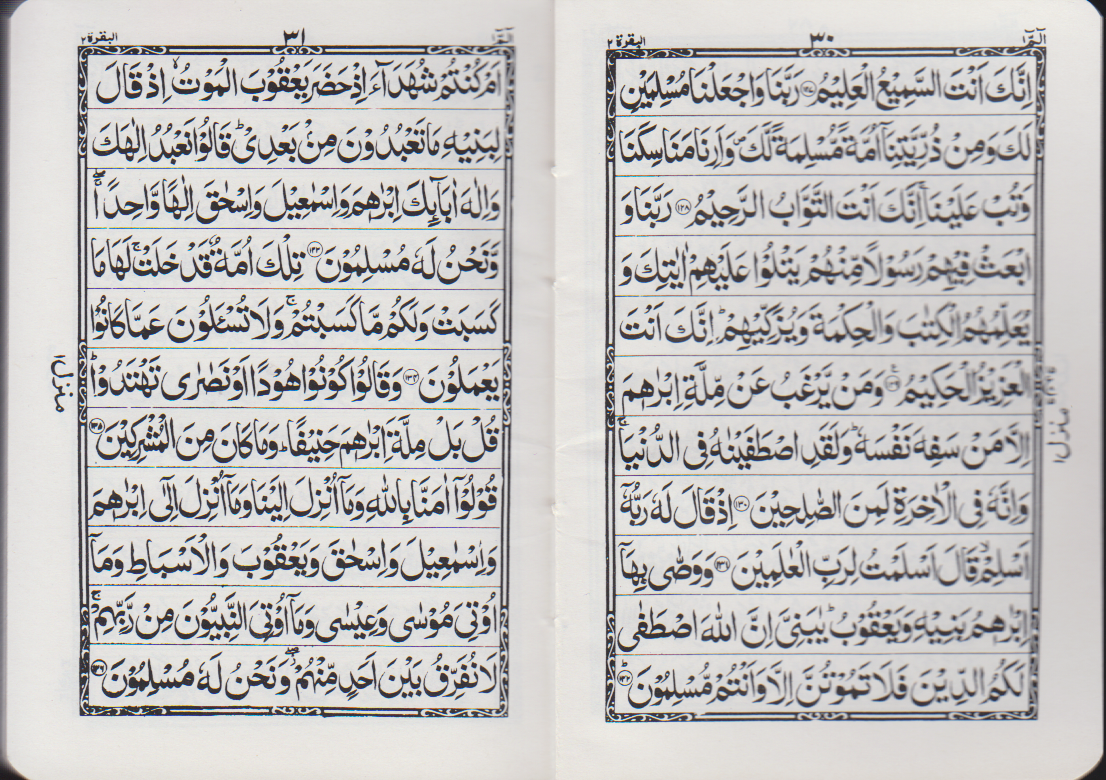 الٓمّٓ ١
٣٠
البقرة ٢
اِنَّكَ اَنْتَ السَّمِيْعُ الْعَلِيْمُ ﴿١٢٧﴾ رَبَّنَا وَاجْعَلْنَا مُسْلِمَيْنِ
لَكَ وَمِنْ ذُرِّيَّتِنَآ اُمَّةً مُّسْلِمَةً لَّكَ ۪ وَاَرِنَا مَنَاسِكَنَا
وَتُبْ عَلَيْنَا ۚ اِنَّكَ اَنْتَ التَّوَّابُ الرَّحِيْمُ ﴿١٢٨﴾ رَبَّنَا وَ
ابْعَثْ فِيْهِمْ رَسُوْلًا مِّنْهُمْ يَتْلُوْا عَلَيْهِمْ اٰيٰتِكَ وَ
يُعَلِّمُهُمُ الْكِتٰبَ وَالْحِكْمَةَ وَيُزَكِّيْهِمْ ؕ اِنَّكَ اَنْتَ
الْعَزِيْزُ الْحَكِيْمُ ﴿١٢٩﴾ وَمَنْ يَّرْغَبُ عَنْ مِّلَّةِ اِبْرٰهٖمَ
اِلَّا مَنْ سَفِهَ نَفْسَهٗ ؕ وَلَقَدِ اصْطَفَيْنٰهُ فِى الدُّنْيَا ۚ
وَاِنَّهٗ فِى الْاٰخِرَةِ لَمِنَ الصّٰلِحِيْنَ ﴿١٣٠﴾ اِذْ قَالَ لَهٗ رَبُّهٗٓ
اَسْلِمْ ۙ قَالَ اَسْلَمْتُ لِرَبِّ الْعٰلَمِيْنَ ﴿١٣١﴾ وَوَصّٰى بِهَآ
اِبْرٰهٖمُ بَنِيْهِ وَيَعْقُوْبُ ؕ يٰبَنِىَّ اِنَّ اللّٰهَ اصْطَفٰى
لَكُمُ الدِّيْنَ فَلَا تَمُوْتُنَّ اِلَّا وَاَنْتُمْ مُّسْلِمُوْنَ ﴿١٣٢﴾ ؕ
منزل ١
الٓمّٓ ١
٣١
البقرة ٢
اَمْ كُنْتُمْ شُهَدَآءَ اِذْ حَضَرَ يَعْقُوْبَ الْمَوْتُ ۙ اِذْ قَالَ
لِبَنِيْهِ مَا تَعْبُدُوْنَ مِنْۢ بَعْدِىْ ؕ قَالُوْا نَعْبُدُ اِلٰهَكَ
وَاِلٰهَ اٰبَآئِكَ اِبْرٰهٖمَ وَاِسْمٰعِيْلَ وَاِسْحٰقَ اِلٰهًا وَّاحِدًا ۖۚ
وَّنَحْنُ لَهٗ مُسْلِمُوْنَ ﴿١٣٣﴾ تِلْكَ اُمَّةٌ قَدْ خَلَتْ ۚ لَهَا مَا
كَسَبَتْ وَلَكُمْ مَّا كَسَبْتُمْ ۚ وَلَا تُسْـَٔلُوْنَ عَمَّا كَانُوْا
يَعْمَلُوْنَ ﴿١٣٤﴾ وَقَالُوْا كُوْنُوْا هُوْدًا اَوْ نَصٰرٰى تَهْتَدُوْا ؕ
قُلْ بَلْ مِلَّةَ اِبْرٰهٖمَ حَنِيْفًا ؕ وَمَا كَانَ مِنَ الْمُشْرِكِيْنَ ﴿١٣٥﴾
قُوْلُوْٓا اٰمَنَّا بِاللّٰهِ وَمَآ اُنْزِلَ اِلَيْنَا وَمَآ اُنْزِلَ اِلٰٓى اِبْرٰهٖمَ
وَاِسْمٰعِيْلَ وَاِسْحٰقَ وَيَعْقُوْبَ وَالْاَسْبَاطِ وَمَآ
اُوْتِىَ مُوْسٰى وَعِيْسٰى وَمَآ اُوْتِىَ النَّبِيُّوْنَ مِنْ رَّبِّهِمْ ۚ
لَا نُفَرِّقُ بَيْنَ اَحَدٍ مِّنْهُمْ ۖ وَنَحْنُ لَهٗ مُسْلِمُوْنَ ﴿١٣٦﴾
منزل ١